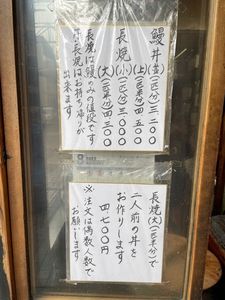 鰻丼(並)(一匹分)三二〇〇
(上)(一匹半分)四五〇〇
長焼(小)(一匹分)三一〇〇
(大)(一匹半分)四三〇〇
長焼は鰻のみの値段です
丼、長焼はお持ち帰りが
出来ます
8
長焼(大)(一匹半分)で
二人前の丼を
お作りします
四七〇〇円
※注文は偶数人数で
お願いします